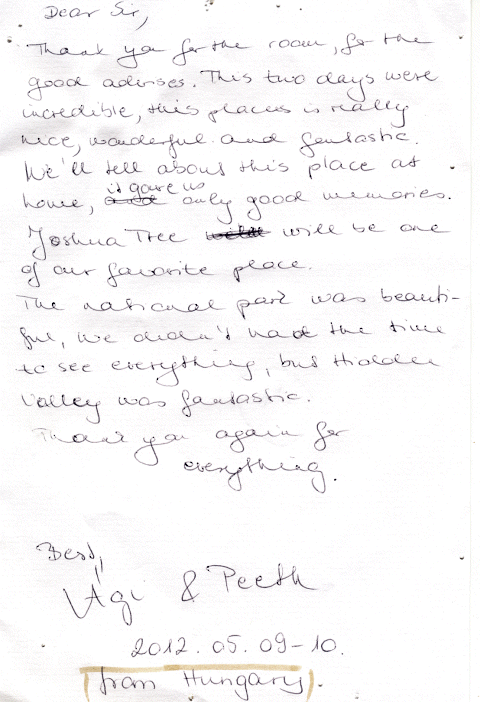 Dear Sir,
Thank you for the room, for the
good advises. This two days were
incredible, this places is really
nice, wonderful and fantastic.
We'll tell about this place at
home, it gave us only good memories.
Joshua Tree will be one
of our favorite place.
The national park was beauti-
ful, we didn't had the time
to see everything, but Hidden
Valley was fantastic.
Thank you again for
everything.
Best,
Ági & Peeth
2012. 05. 09-10.
from Hungary.